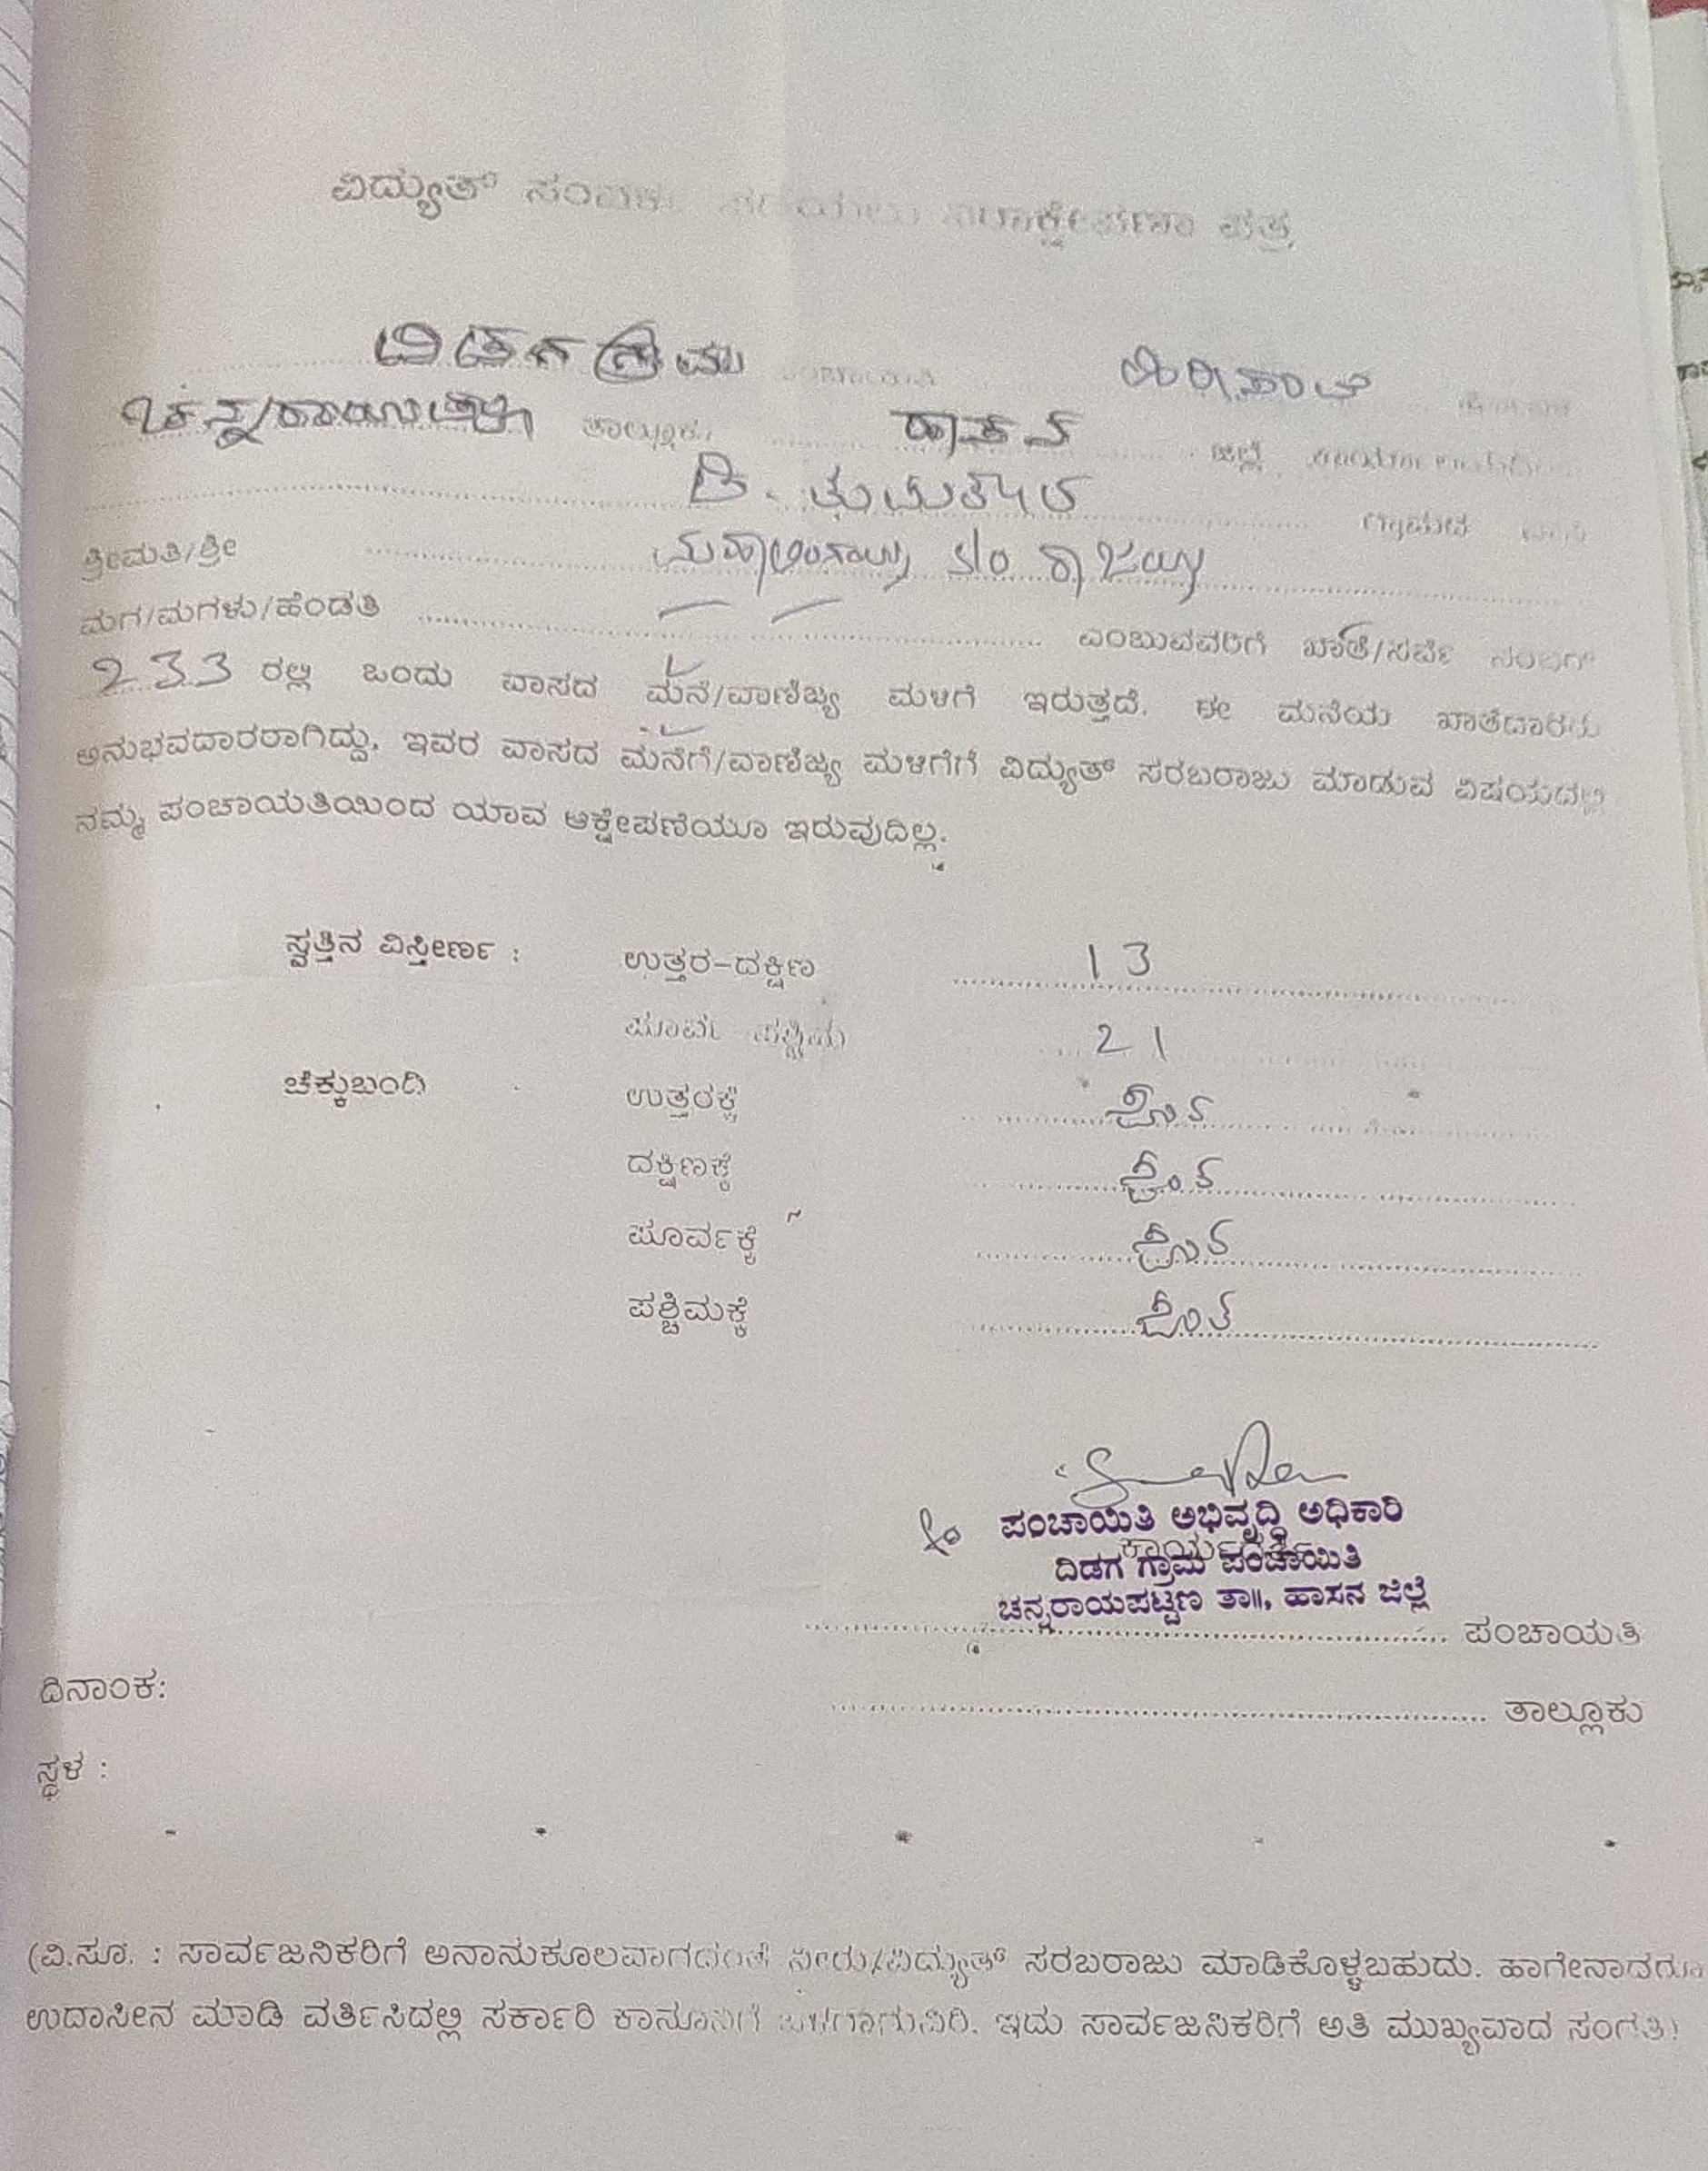 ವಿದ್ಯುತ್ ಸಂಪರ್ಕ ಪಡೆಯಲು ನಿರಾಕ್ಷೇಪಣಾ ಪತ್ರ
ದಿಡಗ ಗ್ರಾಮ ಪಂಚಾಯಿತಿ
ಚನ್ನರಾಯಪಟ್ಟಣ ತಾಲ್ಲೂಕು, ಹಾಸನ ಜಿಲ್ಲೆ,
ಡಿ. ಗ್ರಾಮದ ವಾಸಿ
ಶ್ರೀಮತಿ/ಶ್ರೀ ಮಹಾಲಿಂಗಯ್ಯ s/o ರಾಜಯ್ಯ
ಮಗ/ಮಗಳು/ಹೆಂಡತಿ ಎಂಬುವವರಿಗೆ ಖಾತೆ/ಸರ್ವೆ ನಂಬರ್
233 ರಲ್ಲಿ ಒಂದು ವಾಸದ ಮನೆ/ವಾಣಿಜ್ಯ ಮಳಿಗೆ ಇರುತ್ತದೆ. ಈ ಮನೆಯ ಖಾತೆದಾರರು
ಅನುಭವದಾರರಾಗಿದ್ದು, ಇವರ ವಾಸದ ಮನೆಗೆ/ವಾಣಿಜ್ಯ ಮಳಿಗೆಗೆ ವಿದ್ಯುತ್ ಸರಬರಾಜು ಮಾಡುವ ವಿಷಯದಲ್ಲಿ
ನಮ್ಮ ಪಂಚಾಯತಿಯಿಂದ ಯಾವ ಆಕ್ಷೇಪಣೆಯೂ ಇರುವುದಿಲ್ಲ.
ಸ್ವತ್ತಿನ ವಿಸ್ತೀರ್ಣ : ಉತ್ತರ-ದಕ್ಷಿಣ 13
ಪೂರ್ವ ಪಶ್ಚಿಮ 21
ಚೆಕ್ಕುಬಂದಿ ಉತ್ತರಕ್ಕೆ
ದಕ್ಷಿಣಕ್ಕೆ
ಪೂರ್ವಕ್ಕೆ
ಪಶ್ಚಿಮಕ್ಕೆ
ಪಂಚಾಯಿತಿ ಅಭಿವೃದ್ಧಿ ಅಧಿಕಾರಿ
ಕಾರ್ಯದರ್ಶಿ
ದಿಡಗ ಗ್ರಾಮ ಪಂಚಾಯಿತಿ
ಚನ್ನರಾಯಪಟ್ಟಣ ತಾ||, ಹಾಸನ ಜಿಲ್ಲೆ
ಪಂಚಾಯತಿ
ದಿನಾಂಕ:
ತಾಲ್ಲೂಕು
ಸ್ಥಳ :
(ವಿ.ಸೂ. : ಸಾರ್ವಜನಿಕರಿಗೆ ಅನಾನುಕೂಲವಾಗದಂತೆ ನೀರು/ವಿದ್ಯುತ್ ಸರಬರಾಜು ಮಾಡಿಕೊಳ್ಳಬಹುದು. ಹಾಗೇನಾದರೂ
ಉದಾಸೀನ ಮಾಡಿ ವರ್ತಿಸಿದಲ್ಲಿ ಸರ್ಕಾರಿ ಕಾನೂನಿಗೆ ಒಳಗಾಗುವಿರಿ. ಇದು ಸಾರ್ವಜನಿಕರಿಗೆ ಅತಿ ಮುಖ್ಯವಾದ ಸಂಗತಿ)